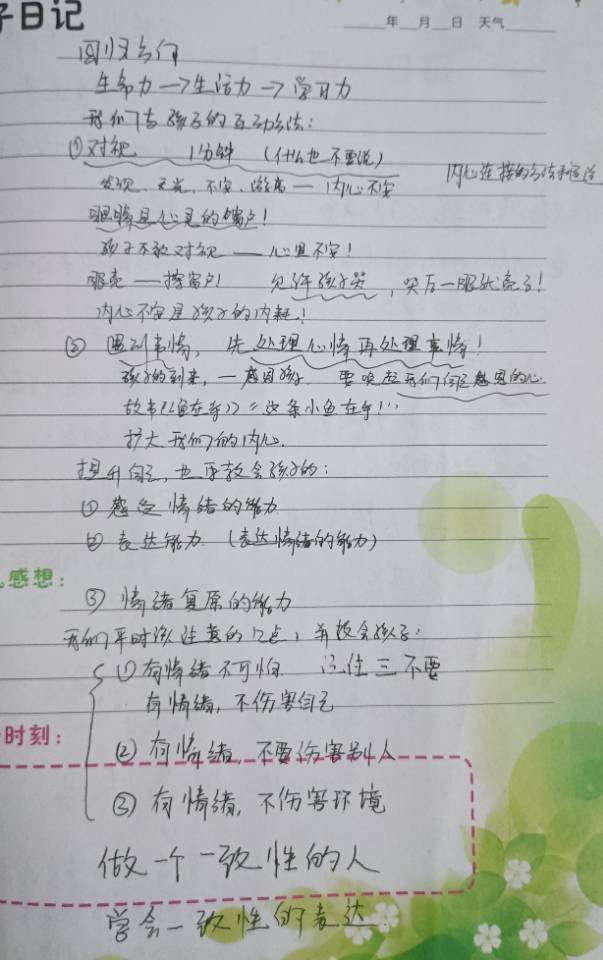 子日记
年 月 日 天气
生命力→生活力→学习力
我们与孩子的互动方法：
①对视 1分钟（什么也不要说） 内心连接的方法和管道
发现、不安、游离——内心不安
眼睛是心灵的窗户！
孩子不敢对视——心里不安！
眼亮——擦窗户！ 允许孩子哭，哭后一眼就亮了！
内心不安是孩子的内耗！
②遇到事情，先处理心情再处理事情！
孩子的到来，一感恩孩子 要唤起我们自己感恩的心
故事《鱼在乎》＝这条小鱼在乎！…
扩大我们的内心.
提升自己，也要教会孩子的：
①感受情绪的能力
②表达能力.（表达情绪的能力）
感想：
③情绪复原的能力
我们平时该注意的几点，并教会孩子：
①有情绪不可怕 记住三不要
有情绪，不伤害自己
时刻：
②有情绪，不要伤害别人
③有情绪，不伤害环境
做一个一致性的人
学会一致性的表达.